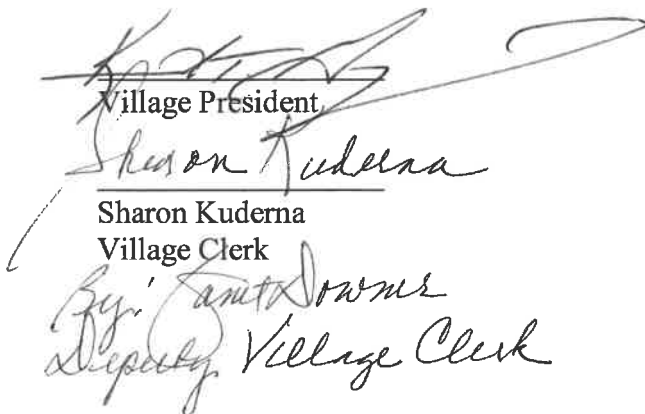 Village President
Sharon Kuderna
Sharon Kuderna
Village Clerk
By: Janet Downer
Deputy Village Clerk